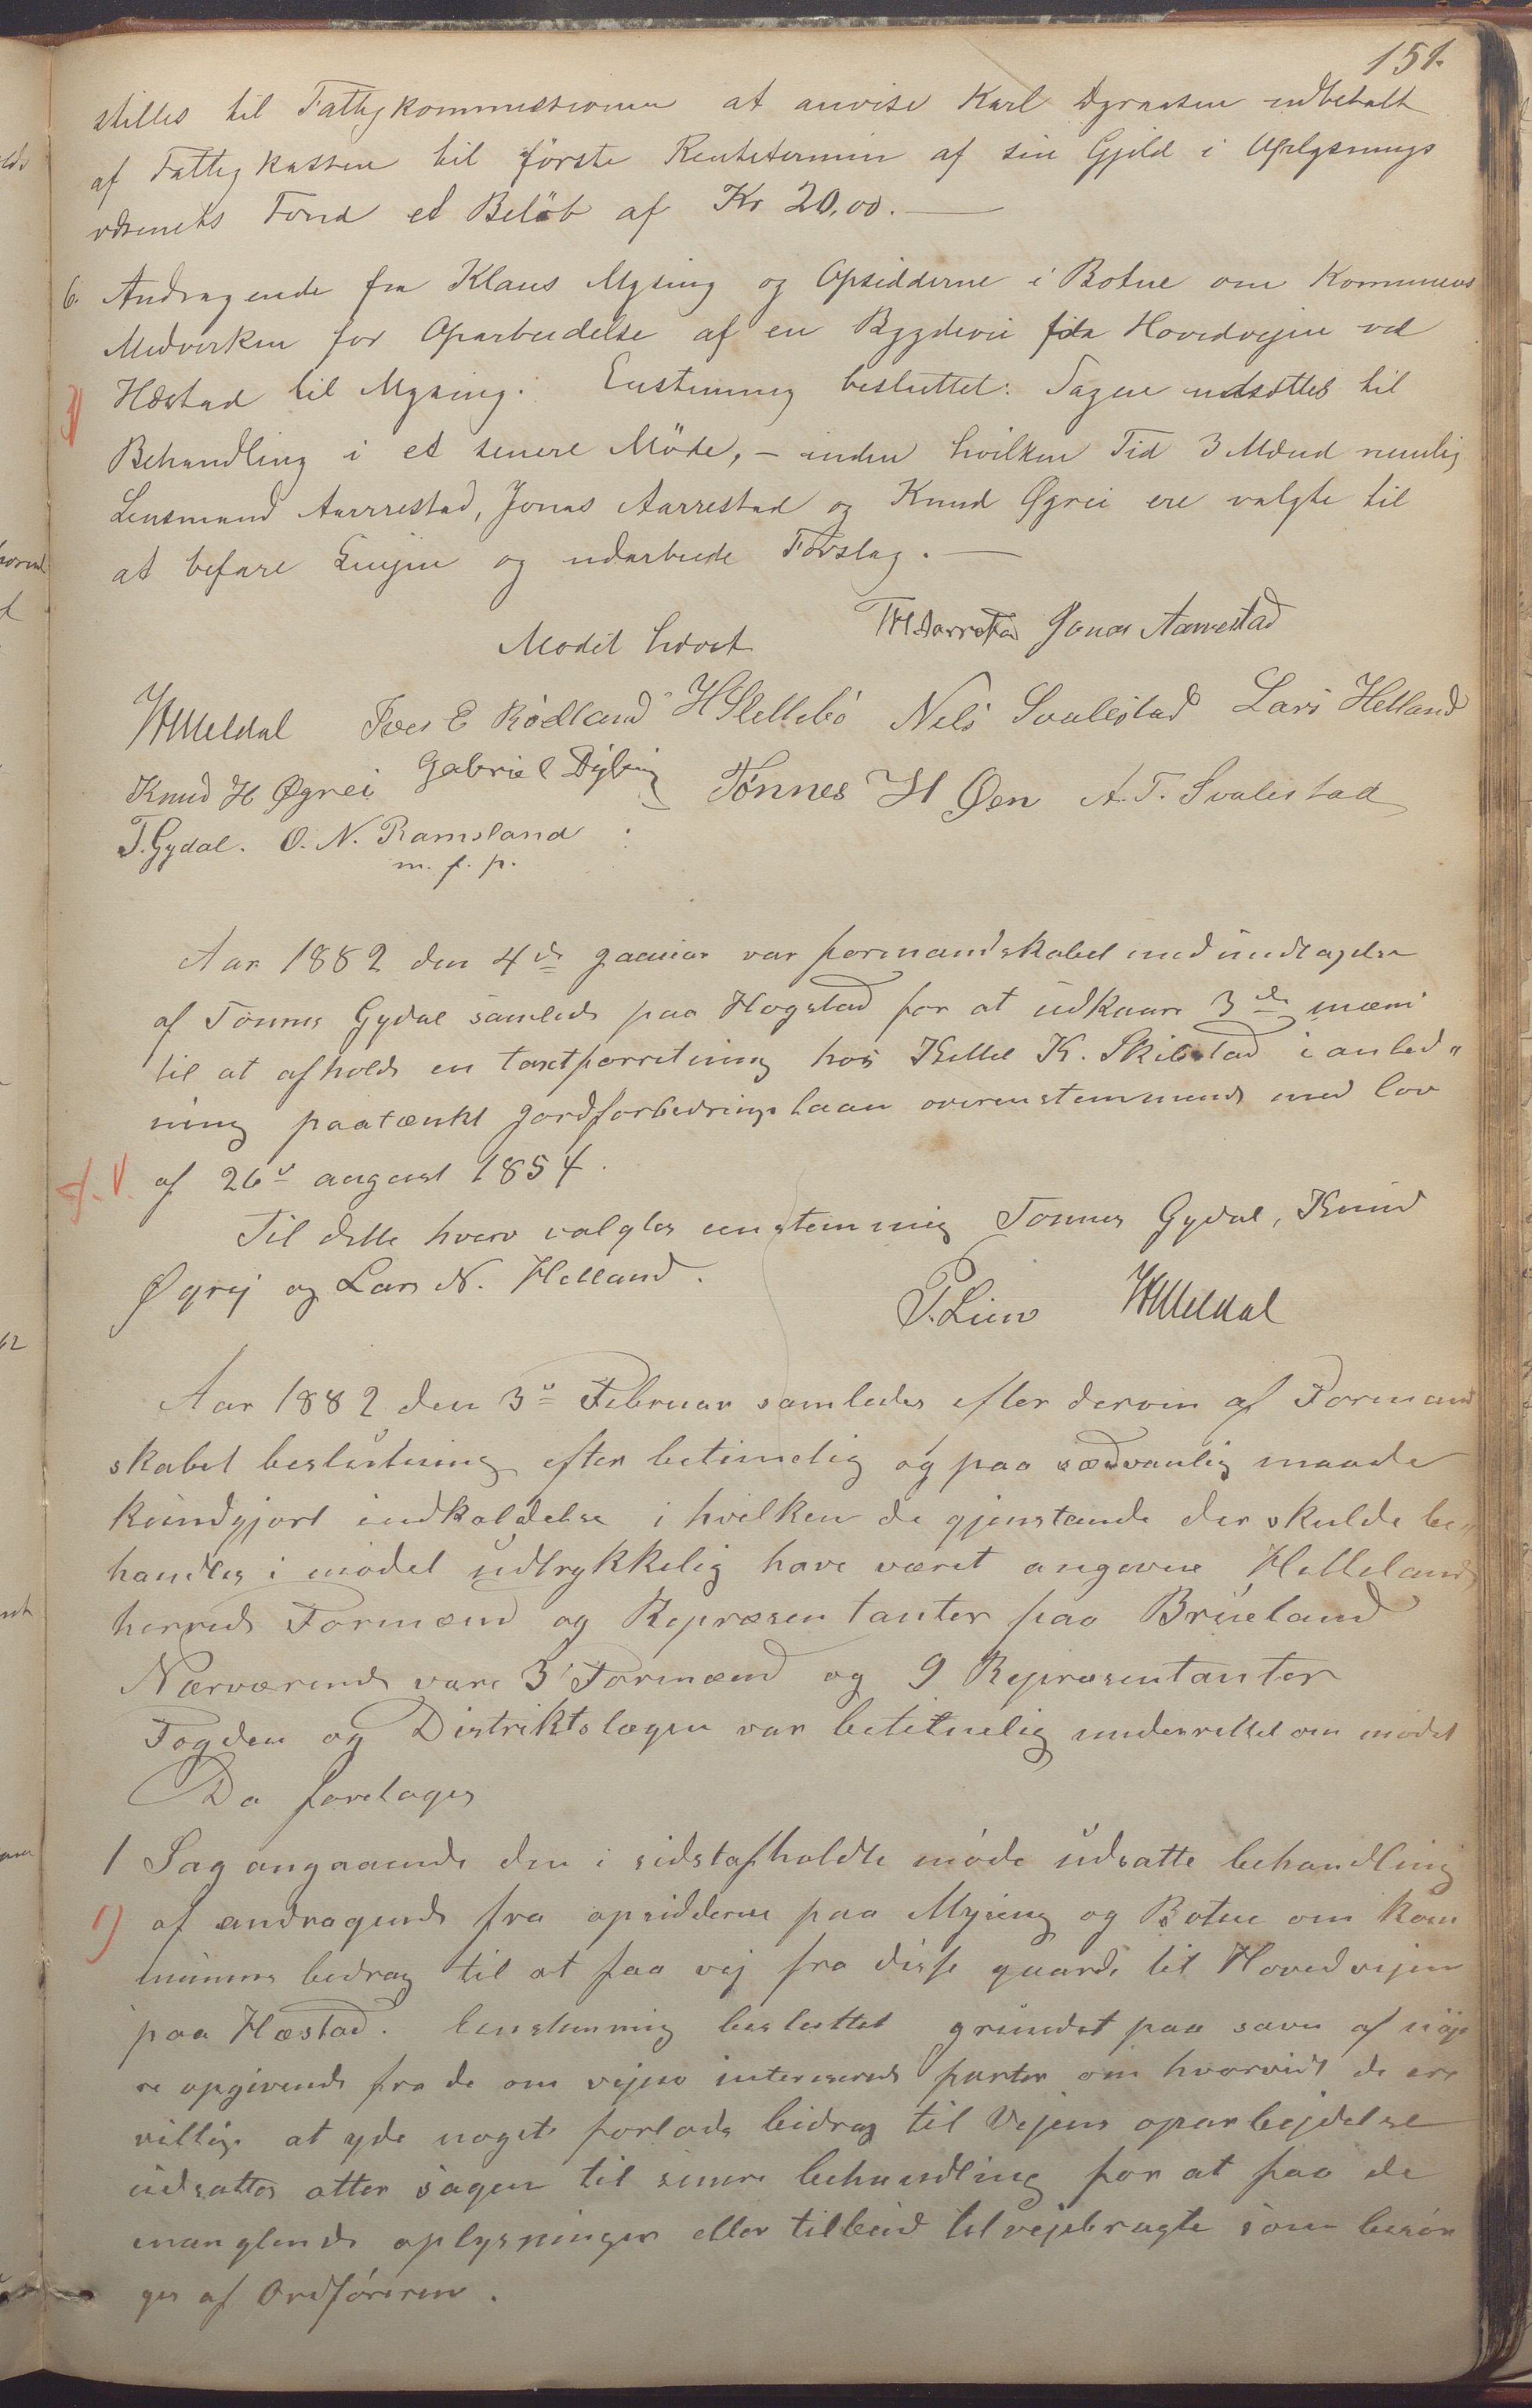 151.
stilles til Fattigkommissionen at anvise Karl Dyraasen udbetalt
af Fattigkassen til förste Rentetermin af sin Gjeld i Oplysnings
væsenets Fond et Belöb af Kr 20,00.
6. Andragende fra Klaus Mysing og Opsidderne i Botne om Kommunens
Medvirken for Oparbeidelse af en Bygdevei fra Hovedvejen ved
Hæstad til Mysing. Enstemmig besluttet: Sagen udsættes til
Behandling i et senere Möde, - inden hvilken Tid 3 Mænd nemlig
Lensmand Aarrestad, Jonas Aarrestad og Knud Øgrei ere valgte til
at befare Linjen og udarbeide Forslag.
Mödet hævet
TH Aarrestad Jonas Aarrestad
Meldal Ivers E Rødland H Slettebö Nels Svalestad Lars Helland
Knud H Øgrei Gabriel Dybing Tönnes H Øen A. T. Svalestad
T. Gydal. O. N. Ramsland
m. f. p.
Aar 1882 den 4de Januar var formandskabet med undtagelse
af Tönnes Gydal samlede paa Hogstad for at udkaare 3de mænd
til at afholde en taxtforretning hos Kittel K. Skibstad i anled„
ning paatænkt Jordforbedringslaan overenstemmende med lov
af 26de august 1854.
Til dette hverv valgtes eenstemmig Tonnes Gydal, Knud
Øgrej og Lars N. Helland.
P. Lien Meldal
Aar 1882 den 3de Februar samledes efter derom af Formand
skabet beslutning efter betimelig og paa sædvanlig maade
kundgjort indkaldelse i hvilken de gjenstande der skulde be„
handles i mødet udtrykkelig have været angivne Hellelands
herreds Formænd og Repræsentanter paa Brueland
Nærværende vare 3 Formænd og 9 Repræsentanter
Fogden og Distriktslægen var betimelig underrettet om mødet
Da foretages
1 Sag angaaende den i sidstafholdte møde udsatte behandling
1) af andragende fra opsidderne paa Mysing og Botne om Kom
munens bedrag til at faa vej fra disse gaarde til Hovedvejen
paa Hæstad. Eenstemmig besluttet grundet paa savn af nöje
re opgivende fra de om vejen interesserede parter om hvorvidt de ere
villige at yde noget forlods beidrag til Vejens oparbejdelse
udsættes atter sagen til senere behandling for at faa de
manglende oplysninger eller tilbud tilvejebragte som besör
ges af Ordföreren.